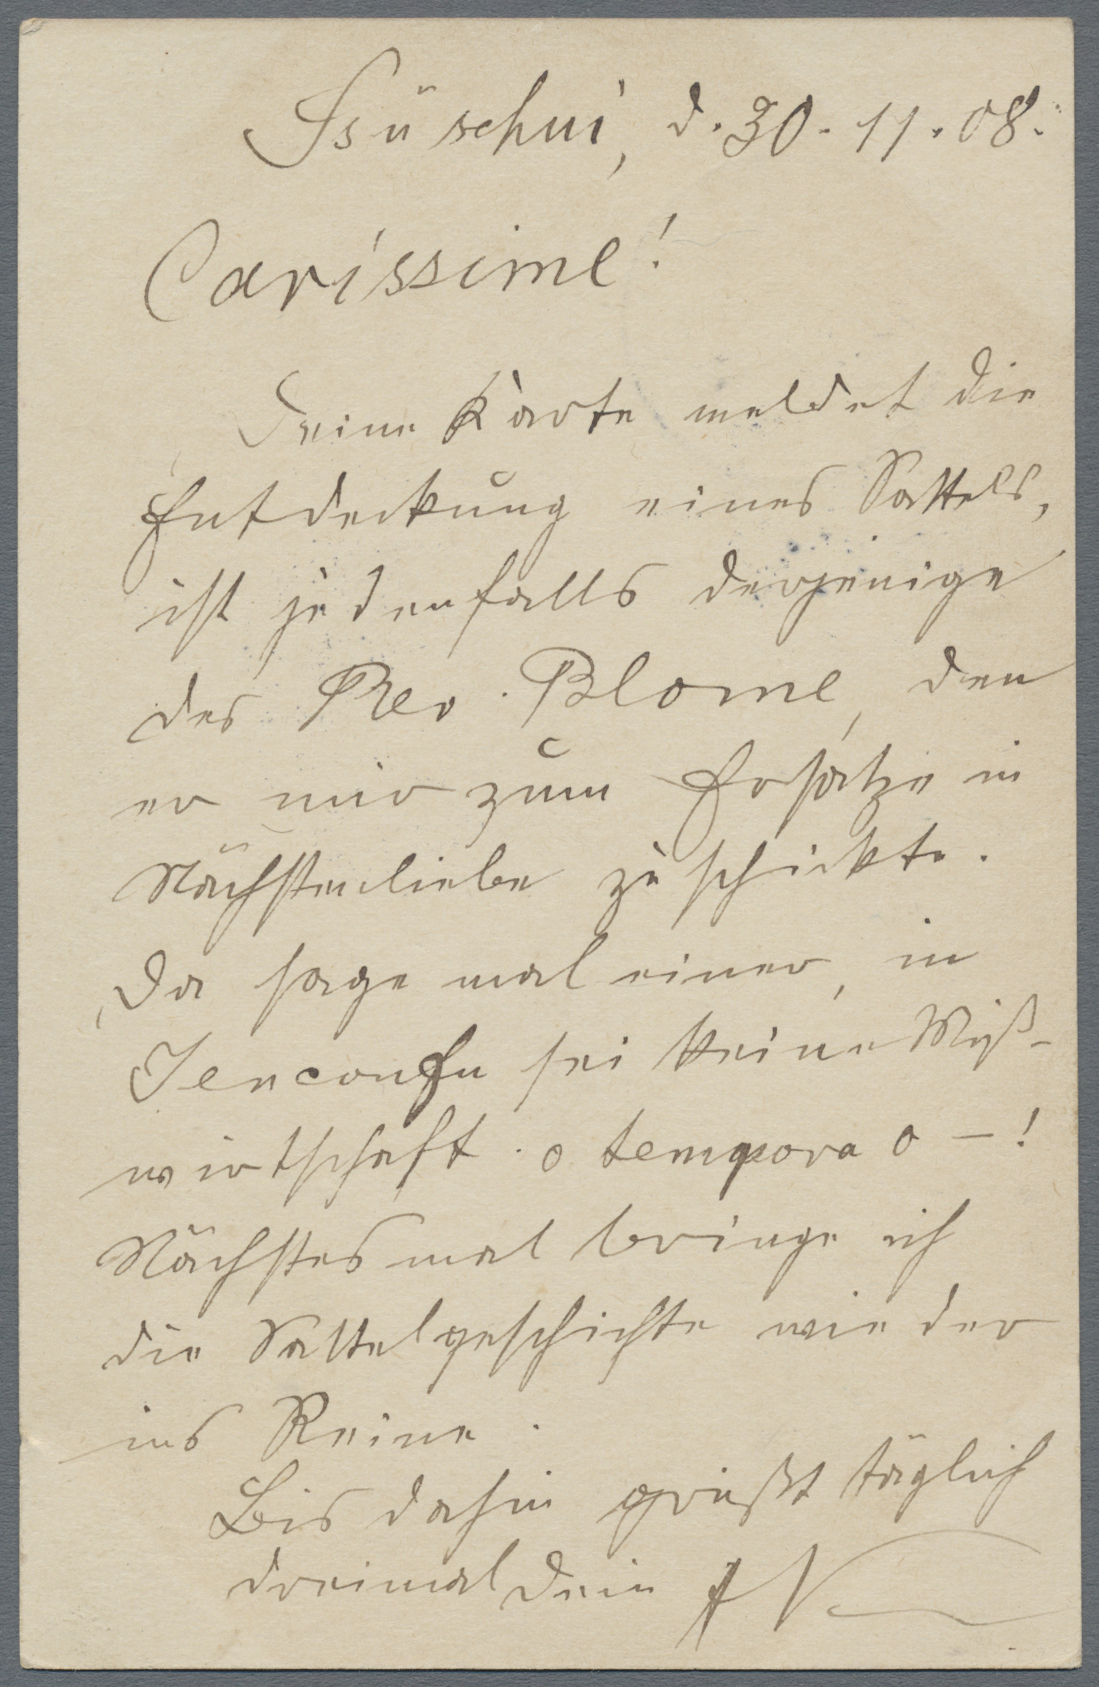 Tsüschui, d. 30. 11. 08.
Carissime!
Deine Karte meldet die
Entdeckung eines Sattels,
ist jedenfalls derjenige
des Rev. Blome, den
er mir zum Ersatze in
Nächstenliebe zuschickte.
Da sage mal einer, in
Jenconfu sei keine Miß-
wirtschaft. o tempora o – !
Nächstesmal bringe ich
die Sattelgeschichte wieder
ins Reine.
Bis dahin grüßt täglich
dreimal Dein